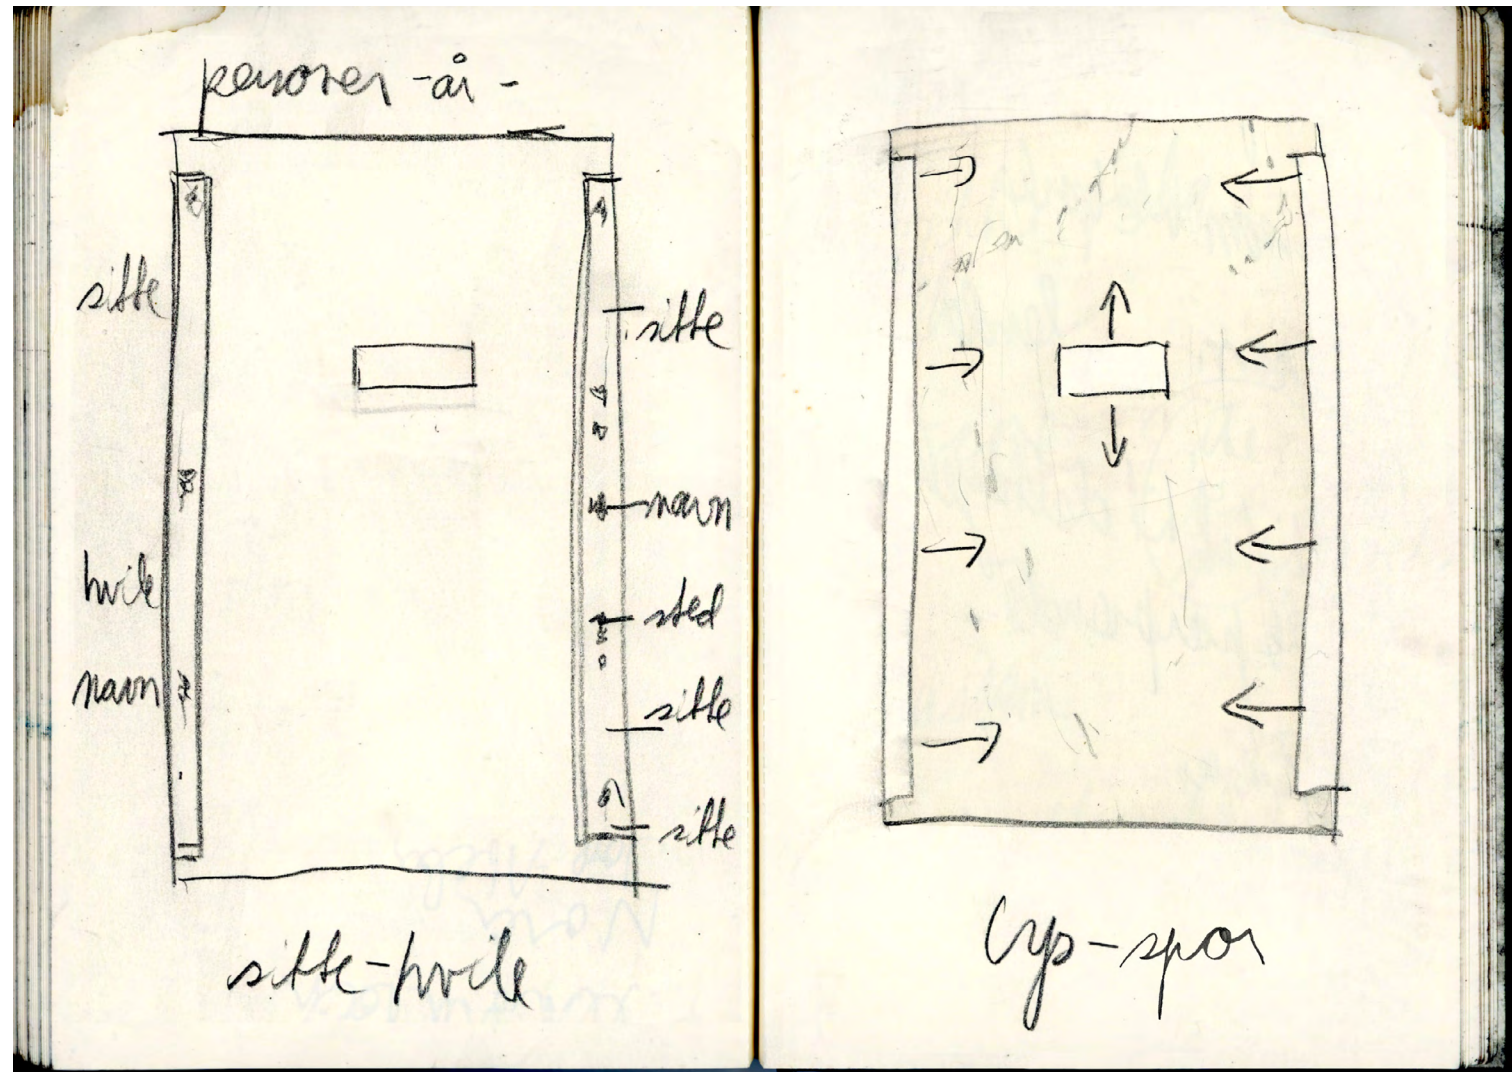 personer -år -
sitte
hvile
navn
sitte
navn
sted
sitte
sitte
sitte-hvile
Lys-spor